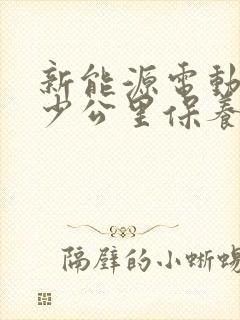 新能源電動
少公里保養
隔壁的小蜥蜴